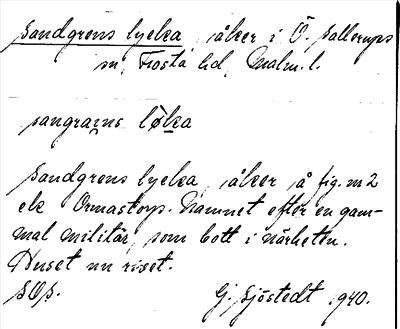 Sandgrens lycka, åker i Ö. Sallerups
sn, Frosta hd, Malm. l.
sangræns løka
Sandgrens lycka, åker å fig. nr 2
ek Ormastorp. Namnet efter en gam-
mal militär, som bott i närheten.
Huset nu rivet.
SOp.
G. Sjöstedt 1940.